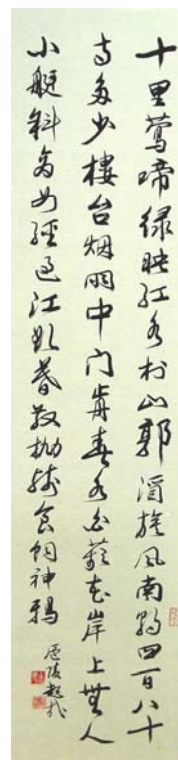 十里莺啼绿映红水村山郭酒旗风南朝四百八十
寺多少樓台烟雨中门前春水白蘋花岸上無人
小艇斜商女經過江欲暮散抛残食饲神鸦